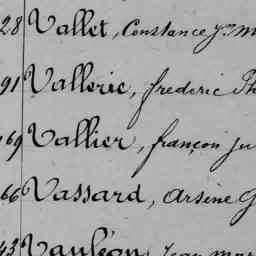 28 Vallet, Constance
91 Vallerie, frederic Th
69 Vallier, françois Ju
66 Vassard, Arsène G
43 Vauléon, Jean Mar